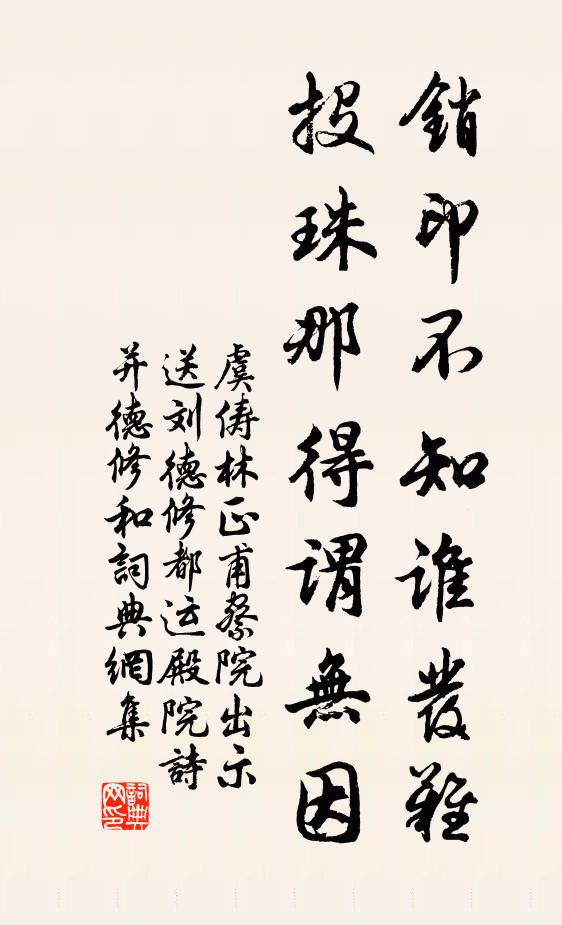 銷印不知誰發難
投珠那得謂無因
虞儔林正甫察院出示
送刘德修都运殿院詩
并德修和詞典網集
詞典网印